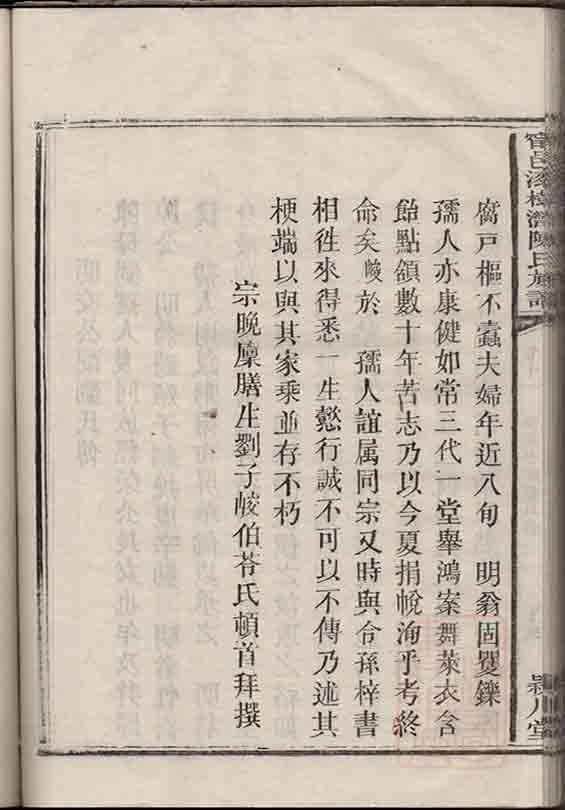 陳氏族譜
潁川堂
腐戶樞不蠹夫婦年近八旬 明翁固矍鑠
孺人亦康健如常三代一堂舉鴻案舞萊衣含
飴點頷數十年苦志乃以今夏捐帨洵乎考終
命矣峻於 孺人誼属同宗又時與令孫梓書
相徃來得悉一生懿行誠不可以不傳乃述其
梗端以與其家乘並存不朽
宗晚廩膳生劉子峻伯苓氏頓首拜撰